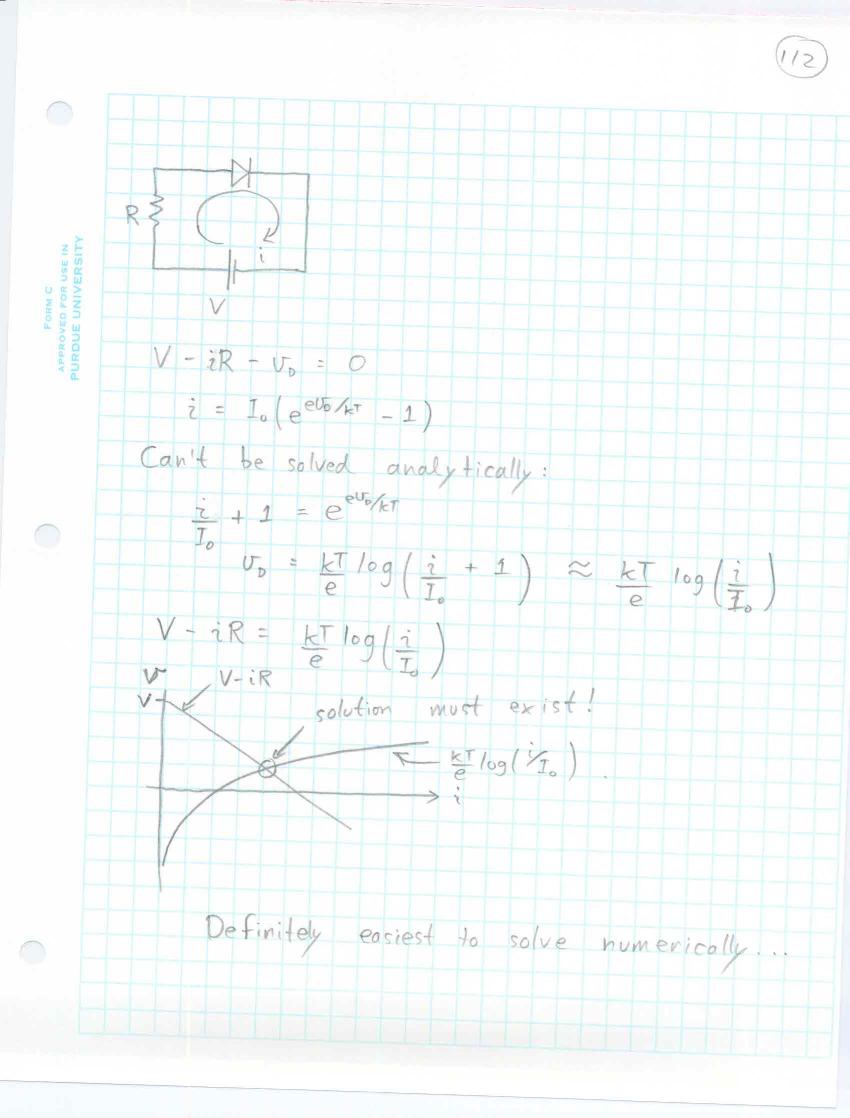 112
FORM C
APPROVED FOR USE IN
PURDUE UNIVERSITY
R
i
V
V - iR - v_D = 0
i = I₀(e^{ev_D/kT} - 1)
Can't be solved analytically:
i/I₀ + 1 = e^{ev_D/kT}
v_D = kT/e log(i/I₀ + 1) ≈ kT/e log(i/I₀)
V - iR = kT/e log(i/I₀)
v
V
V-iR
solution must exist!
kT/e log(i/I₀)
i
Definitely easiest to solve numerically...